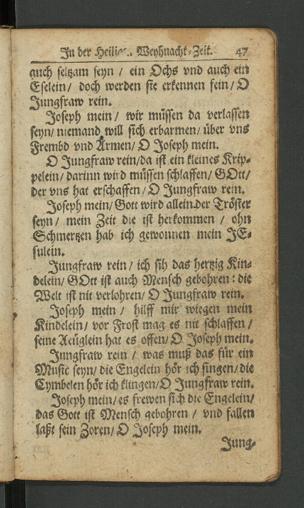 In der Heilig. Weyhnacht-Zeit. 47
auch seltzam seyn / ein Ochs vnd auch ein
Eselein / doch werden sie erkennen fein / O
Jungfraw rein.
Joseph mein / wir müssen da verlassen
seyn / niemand will sich erbarmen / über vns
Frembd vnd Armen / O Joseph mein.
O Jungfraw rein / da ist ein kleines Krip-
pelein / darinn wird müssen schlaffen / GOtt /
der vns hat erschaffen / O Jungfraw rein.
Joseph mein / Gott wird allein der Tröster
seyn / mein Zeit die ist herkommen / ohn
Schmertzen hab ich gewonnen mein JE-
sulein.
Jungfraw rein / ich sih das hertzig Kin-
delein / GOtt ist auch Mensch gebohren: die
Welt ist nit verlohren / O Jungfraw rein.
Joseph mein / hilff mir wiegen mein
Kindelein / vor Frost mag es nit schlaffen /
seine Aeuglein hat es offen / O Joseph mein.
Jungfraw rein / was muß das für ein
Music seyn / die Engelein hör ich singen / die
Cymbelen hör ich klingen / O Jungfraw rein.
Joseph mein / es frewen sich die Engelein /
das Gott ist Mensch gebohren / vnd fallen
laßt sein Zoren / O Joseph mein.
Jung-